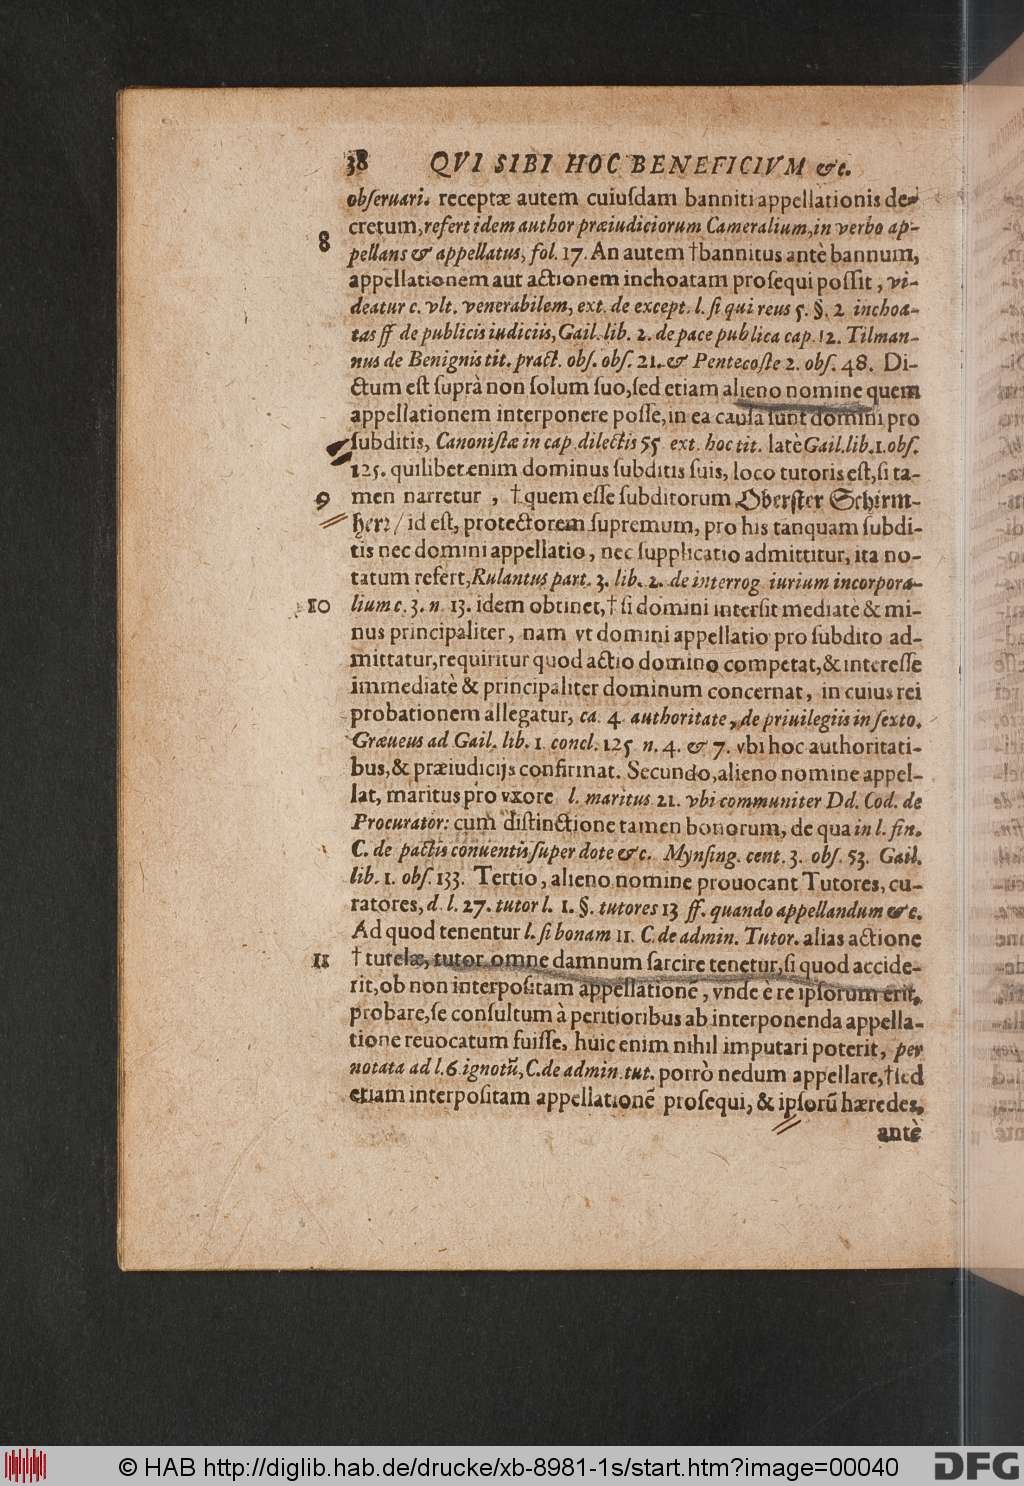 38 QVI SIBI HOC BENEFICIVM &c.
obſeruari. receptæ autem cuiuſdam banniti appellationis de-
cretum, refert idem author præiudiciorum Cameralium, in verbo ap-
8 pellans & appellatus, fol. 17. An autem †bannitus antè bannum,
appellationem aut actionem inchoatam proſequi poſſit, vi-
deatur c. vlt. venerabilem, ext. de except. l. ſi qui reus 5. §. 2 inchoa-
tas ff de publicis iudiciis, Gail. lib. 2. de pace publica cap. 12. Tilman-
nus de Benignis tit. pract. obſ. obſ. 21. & Pentecoſte 2. obſ. 48. Di-
ctum eſt ſuprà non ſolum ſuo, ſed etiam alieno nomine quem
appellationem interponere poſſe, in ea cauſa ſunt domini pro
ſubditis, Canoniſtæ in cap. dilectis 55 ext. hoc tit. latè Gail. lib. 1. obſ.
125. quilibet enim dominus ſubditis ſuis, loco tutoris eſt, ſi ta-
9 men narretur, † quem eſſe ſubditorum Oberſter Schirm-
herr / id eſt, protectorem ſupremum, pro his tanquam ſubdi-
tis nec domini appellatio, nec ſupplicatio admittitur, ita no-
tatum refert, Rulantus part. 3. lib. 2. de interrog iurium incorpora-
10 lium c. 3. n. 13. idem obtinet, † ſi domini interſit mediatè & mi-
nus principaliter, nam vt domini appellatio pro ſubdito ad-
mittatur, requiritur quod actio domino competat, & intereſſe
immediatè & principaliter dominum concernat, in cuius rei
probationem allegatur, ca. 4. authoritate, de priuilegiis in ſexto.
Græueus ad Gail. lib. 1. concl. 125 n. 4. & 7. vbi hoc authoritati-
bus, & præiudicijs confirmat. Secundo, alieno nomine appel-
lat, maritus pro vxore l. maritus 21. vbi communiter Dd. Cod. de
Procurator: cum diſtinctione tamen bonorum, de qua in l. fin.
C. de pactis conuentis ſuper dote &c. Mynſing. cent. 3. obſ. 53. Gail.
lib. 1. obſ. 133. Tertio, alieno nomine prouocant Tutores, cu-
ratores, d. l. 27. tutor l. 1. §. tutores 13 ff. quando appellandum &c.
Ad quod tenentur l. ſi bonam 11. C. de admin. Tutor. alias actione
11 † tutelæ, tutor omne damnum ſarcire tenetur, ſi quod accide-
rit, ob non interpoſitam appellationē, vnde è re ipſorum erit,
probare, ſe conſultum à peritioribus ab interponenda appella-
tione reuocatum fuiſſe, huic enim nihil imputari poterit, per
notata ad l. 6. ignotū, C. de admin. tut. porrò nedum appellare, † ſed
etiam interpoſitam appellationē proſequi, & ipſorū hæredes,
antè
© HAB http://diglib.hab.de/drucke/xb-8981-1s/start.htm?image=00040
DFG